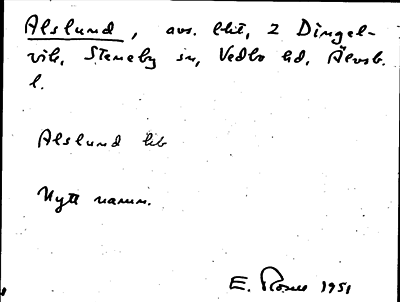 Alslund, avs. lht, 2 Dingel-
vik, Steneby sn, Vedbo hd, Älvsb.
l.
Alslund lht
Nytt namn.
E. 1951